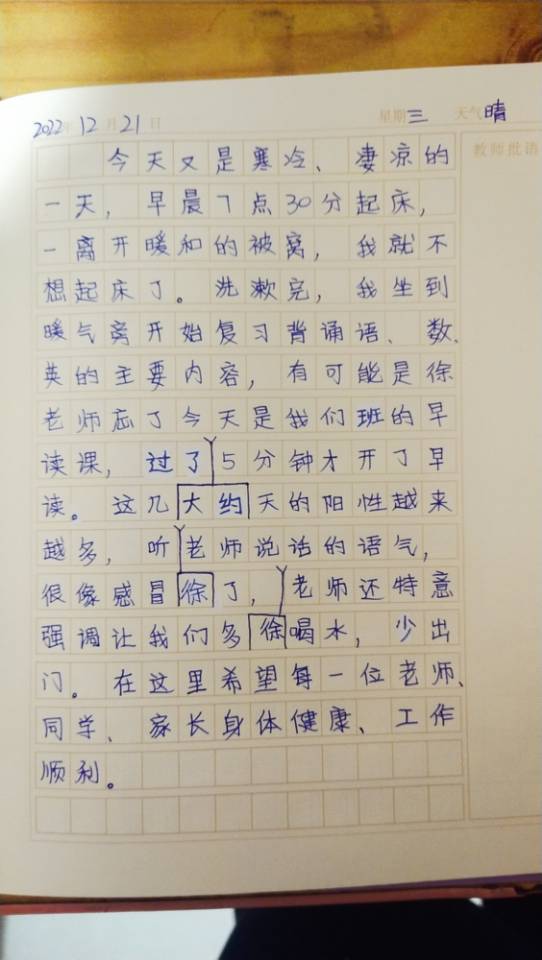 2022年12月21日 星期三 天气晴
教师批语
今天又是寒冷、凄凉的
一天，早晨7点30分起床，
一离开暖和的被窝，我就不
想起床了。洗漱完，我坐到
暖气旁开始复习背诵语、数、
英的主要内容，有可能是徐
老师忘了今天是我们班的早
读课，过了5分钟才开了早
读。这几大约天的阳性越来
越多，听老师说话的语气，
很像感冒徐了，老师还特意
强调让我们多徐喝水，少出
门。在这里希望每一位老师、
同学、家长身体健康、工作
顺利。